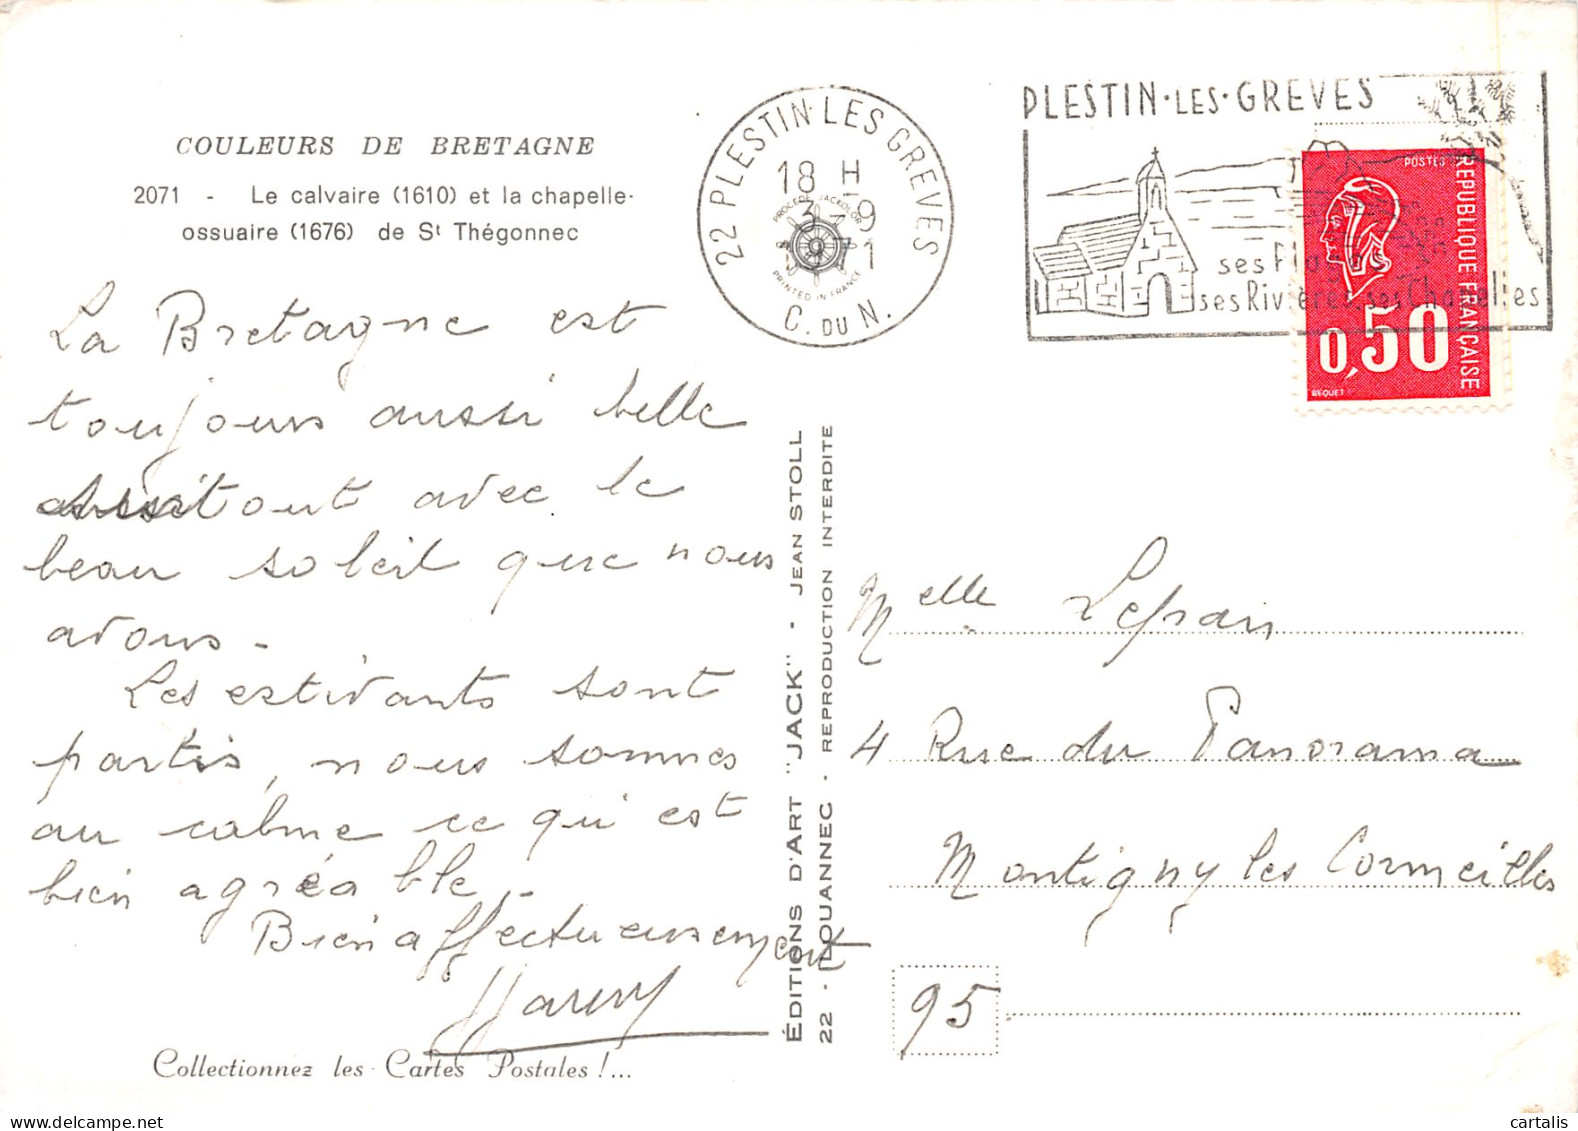 COULEURS DE BRETAGNE
2071 - Le calvaire (1610) et la chapelle-
ossuaire (1676) de St Thégonnec
La Bretagne est
toujours aussi belle
surtout avec le
beau soleil que nous
avons -
Les estivants sont
partis, nous sommes
au calme ce qui est
bien agréable.
Bien affectueusement
Collectionnez les Cartes Postales !...
22 PLESTIN-LES GREVES
18 H
3-9
71
C. DU N.
PROCÉDÉ JACKOLOR
PRINTED IN FRANCE
PLESTIN·LES·GREVES
ses Plages
ses Rivières ses Chapelles
POSTES
REPUBLIQUE FRANÇAISE
0,50
BEQUET
ÉDITIONS D'ART "JACK" - JEAN STOLL
22 - LOUANNEC - REPRODUCTION INTERDITE
Melle Lefran
4 Rue du Panorama
Montigny les Cormeilles
95
cartalis